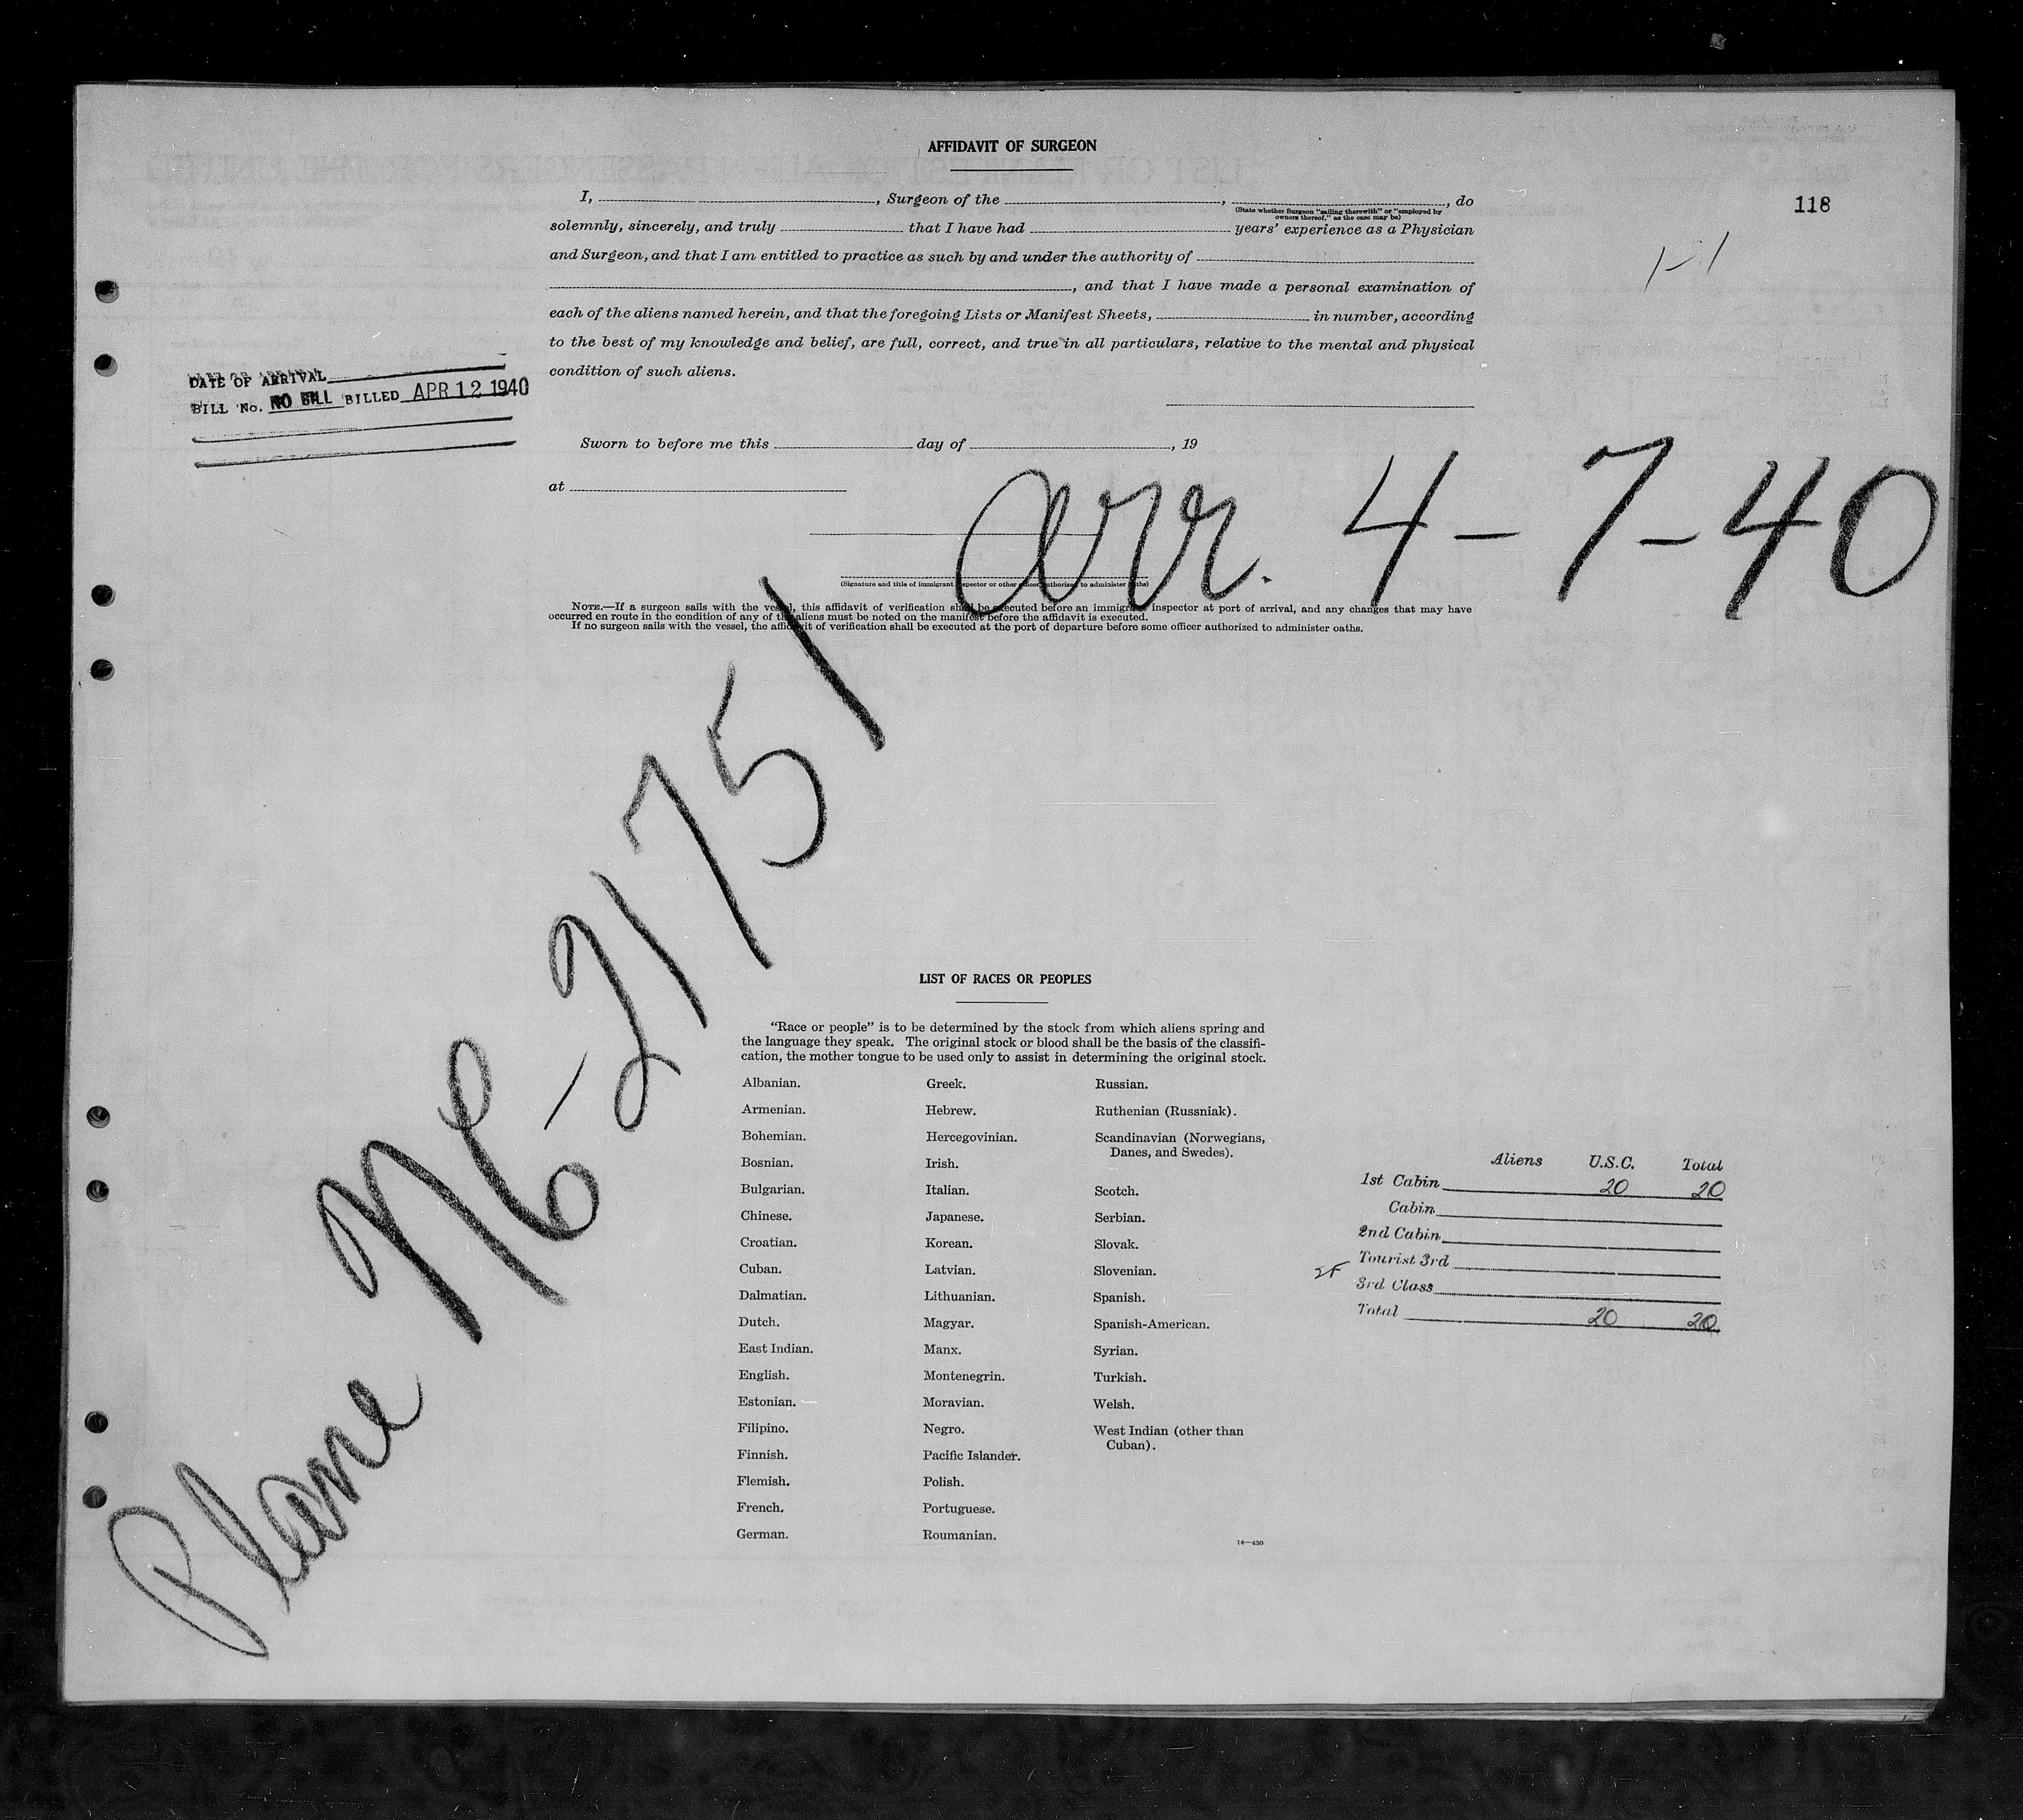 AFFIDAVIT OF SURGEON
118
I, , Surgeon of the , , do
(State whether Surgeon "sailing therewith" or "employed by
owners thereof," as the case may be)
solemnly, sincerely, and truly that I have had years' experience as a Physician
and Surgeon, and that I am entitled to practice as such by and under the authority of
, and that I have made a personal examination of
each of the aliens named herein, and that the foregoing Lists or Manifest Sheets, in number, according
to the best of my knowledge and belief, are full, correct, and true in all particulars, relative to the mental and physical
condition of such aliens.
1-1
DATE OF ARRIVAL
BILL No. NO BILL BILLED APR 12 1940
Sworn to before me this day of , 19
at
arr. 4-7-40
(Signature and title of immigrant inspector or other officer authorized to administer oaths)
NOTE.—If a surgeon sails with the vessel, this affidavit of verification shall be executed before an immigrant inspector at port of arrival, and any changes that may have
occurred en route in the condition of any of the aliens must be noted on the manifest before the affidavit is executed.
If no surgeon sails with the vessel, the affidavit of verification shall be executed at the port of departure before some officer authorized to administer oaths.
Plane NC-21751
LIST OF RACES OR PEOPLES
"Race or people" is to be determined by the stock from which aliens spring and
the language they speak. The original stock or blood shall be the basis of the classifi-
cation, the mother tongue to be used only to assist in determining the original stock.
Albanian.
Armenian.
Bohemian.
Bosnian.
Bulgarian.
Chinese.
Croatian.
Cuban.
Dalmatian.
Dutch.
East Indian.
English.
Estonian.
Filipino.
Finnish.
Flemish.
French.
German.
Greek.
Hebrew.
Hercegovinian.
Irish.
Italian.
Japanese.
Korean.
Latvian.
Lithuanian.
Magyar.
Manx.
Montenegrin.
Moravian.
Negro.
Pacific Islander.
Polish.
Portuguese.
Roumanian.
Russian.
Ruthenian (Russniak).
Scandinavian (Norwegians,
Danes, and Swedes).
Scotch.
Serbian.
Slovak.
Slovenian.
Spanish.
Spanish-American.
Syrian.
Turkish.
Welsh.
West Indian (other than
Cuban).
14—430
Aliens U.S.C. Total
1st Cabin 20 20
Cabin
2nd Cabin
Tourist 3rd
3rd Class
Total 20 20